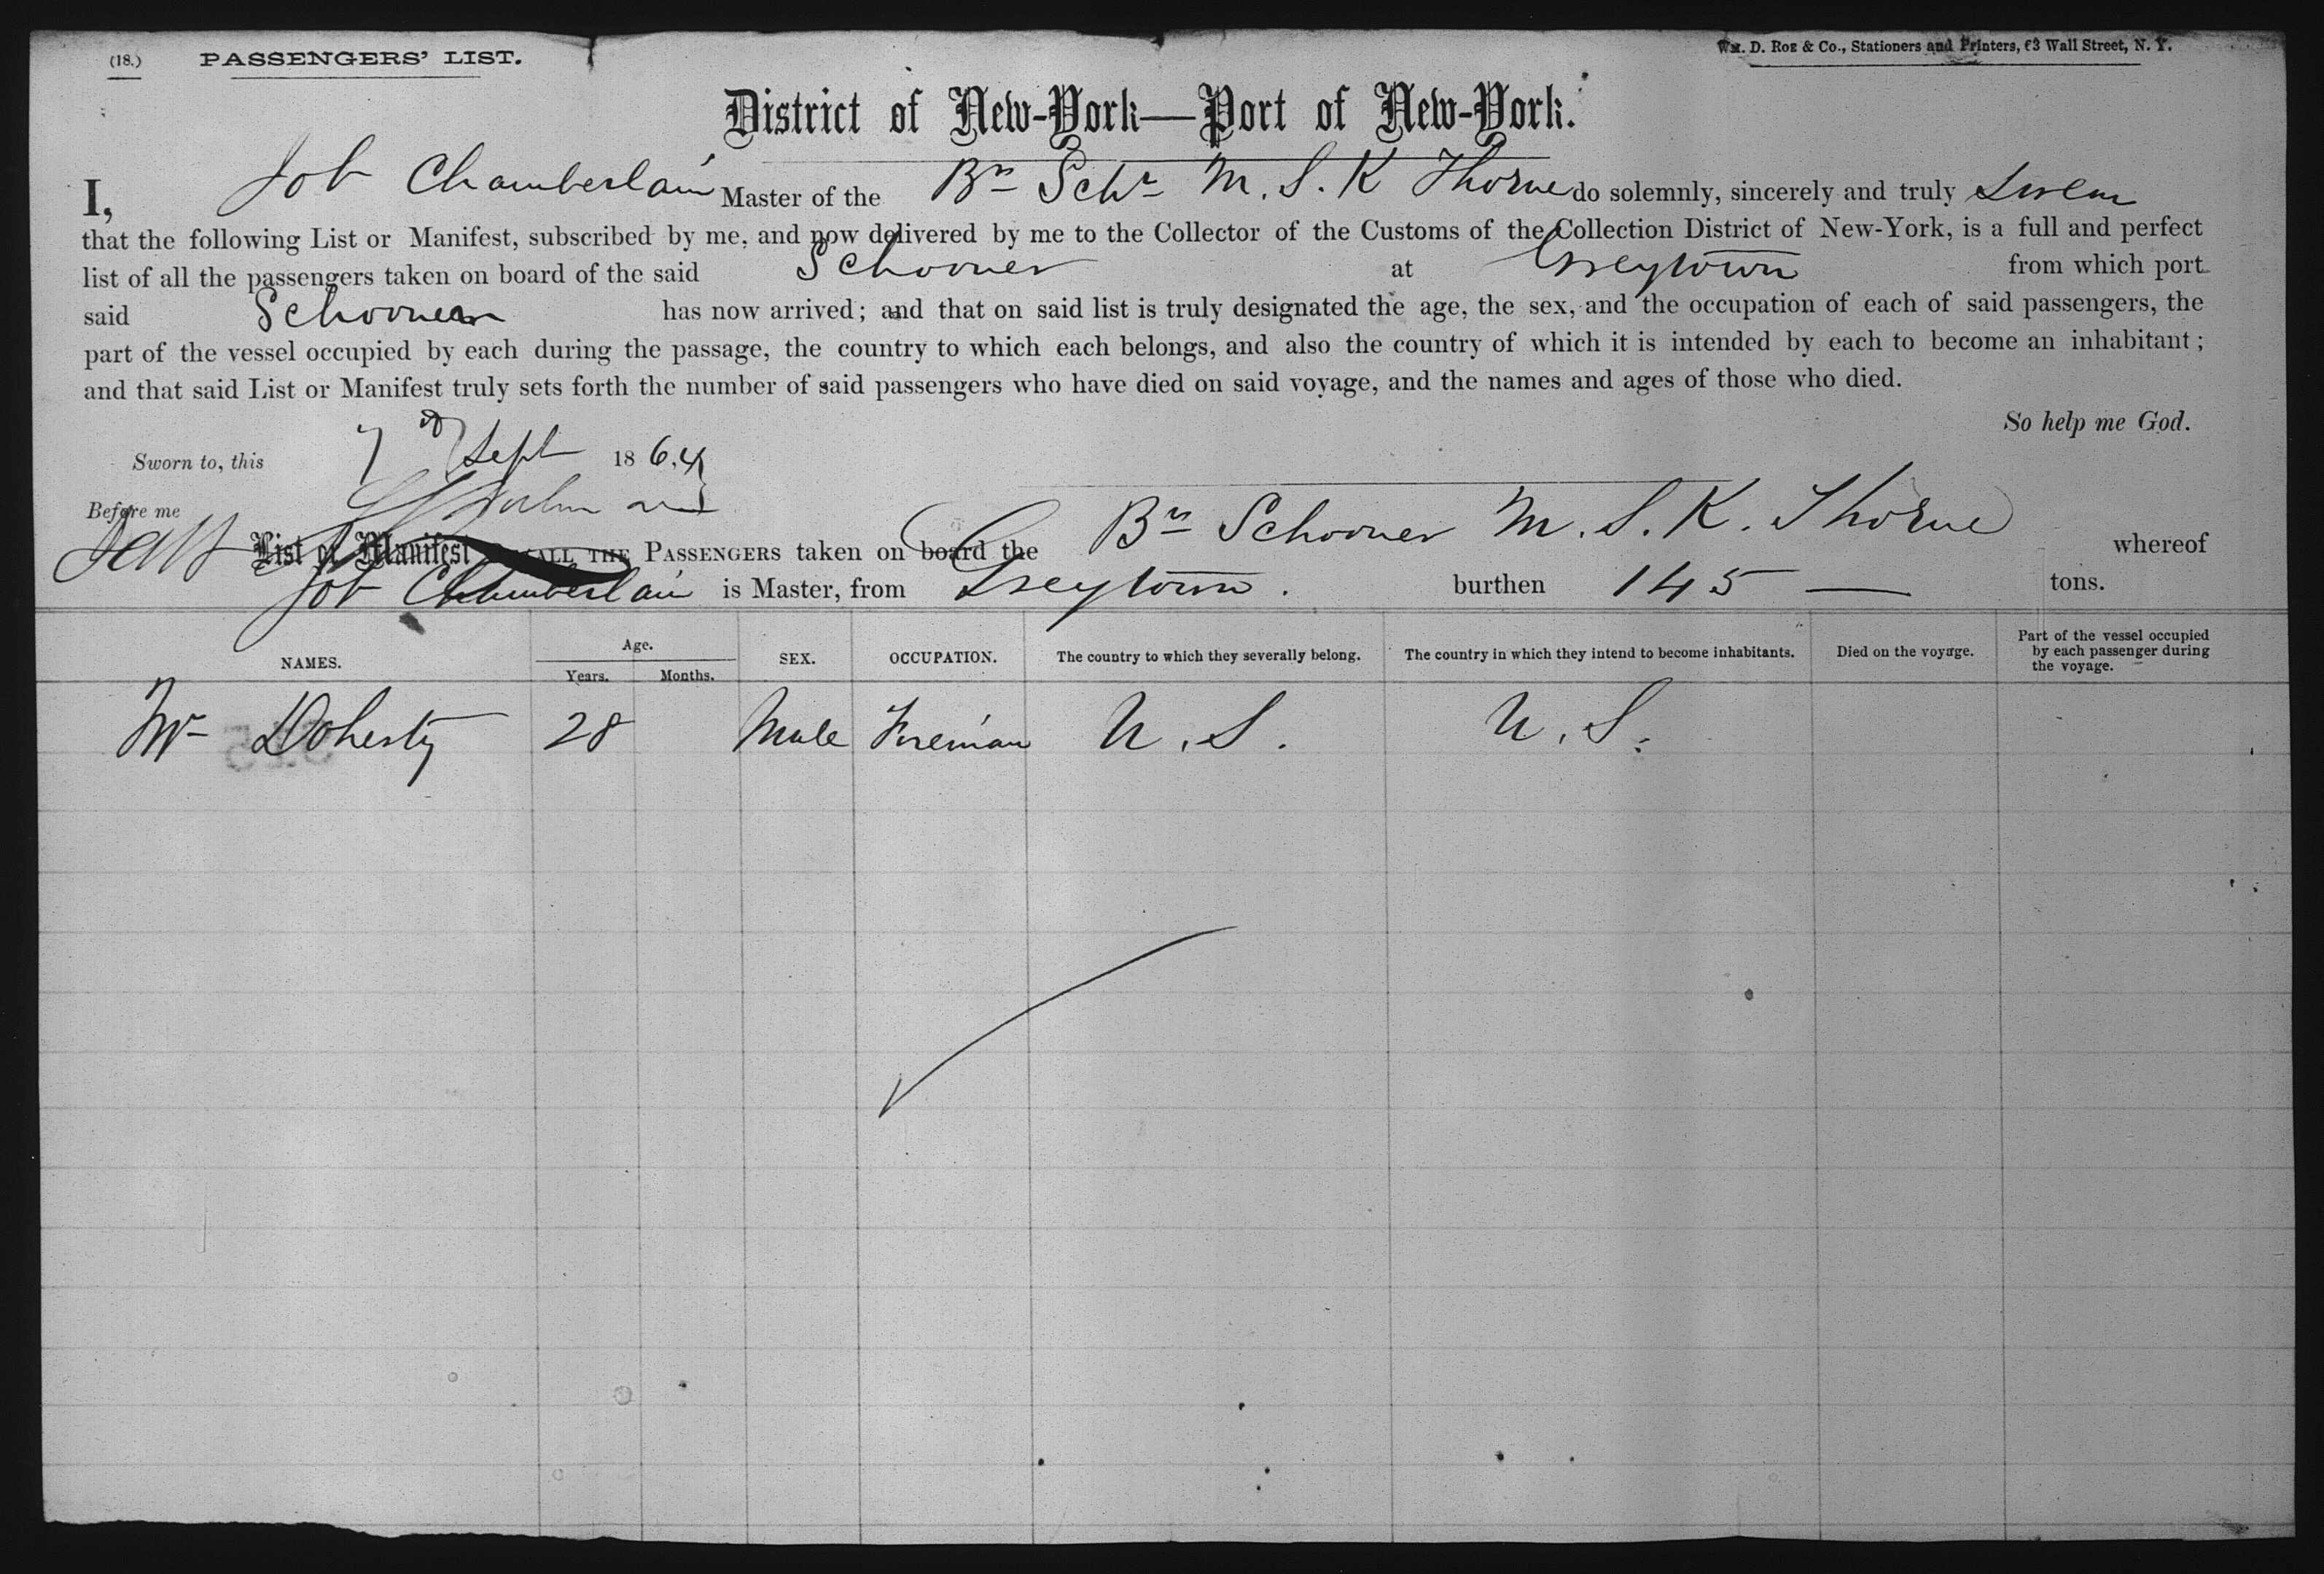 (18.) PASSENGERS' LIST.
Wm. D. Roe & Co., Stationers and Printers, 63 Wall Street, N. Y.
District of New-York—Port of New-York.
I, Job Chamberlain Master of the Br Schr M. S. K Thorne do solemnly, sincerely and truly swear
that the following List or Manifest, subscribed by me, and now delivered by me to the Collector of the Customs of the Collection District of New-York, is a full and perfect
list of all the passengers taken on board of the said Schooner at Greytown from which port
said Schooner has now arrived; and that on said list is truly designated the age, the sex, and the occupation of each of said passengers, the
part of the vessel occupied by each during the passage, the country to which each belongs, and also the country of which it is intended by each to become an inhabitant;
and that said List or Manifest truly sets forth the number of said passengers who have died on said voyage, and the names and ages of those who died.
So help me God.
Sworn to, this 7 Sept 1864
Before me
List or Manifest OF ALL THE PASSENGERS taken on board the Br Schooner M. S. K. Thorne whereof
Job Chamberlain is Master, from Greytown. burthen 145 — tons.
NAMES. Age. Years. Months. SEX. OCCUPATION. The country to which they severally belong. The country in which they intend to become inhabitants. Died on the voyage. Part of the vessel occupied by each passenger during the voyage.
Wm Doherty 28 Male Fireman U. S. U. S.